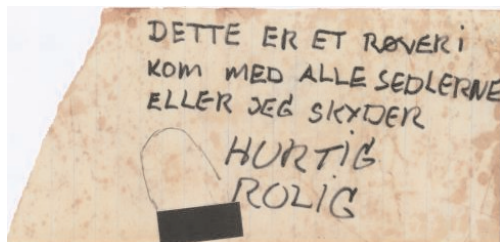 DETTE ER ET RØVERi
KOM MED ALLE SEDLERNE
ELLER JEG SKYDER
HURTiG
ROLiG